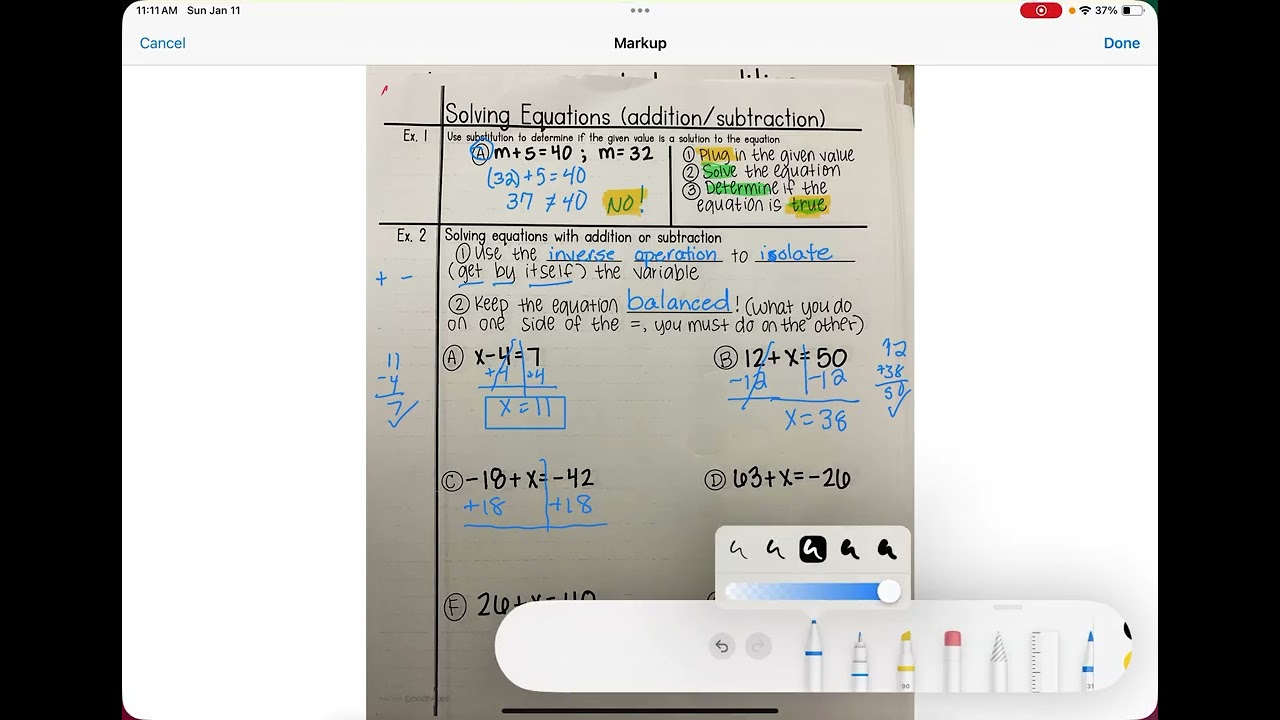 11:11 AM Sun Jan 11
37%
Cancel
Markup
Done
Solving Equations (addition/subtraction)
Ex. 1
Use substitution to determine if the given value is a solution to the equation
Ⓐ m+5=40 ; m=32
(32)+5=40
37 ≠ 40 NO!
① Plug in the given value
② Solve the equation
③ Determine if the
equation is true
Ex. 2
Solving equations with addition or subtraction
① Use the inverse operation to isolate
(get by itself) the variable
+ -
② Keep the equation balanced! (What you do
on one side of the =, you must do on the other)
Ⓐ x-4=7
+4 +4
x = 11
11
-4
7 ✓
Ⓑ 12+x=50
-12 -12
x=38
12
+38
50
✓
Ⓒ -18+x=-42
+18 +18
Ⓓ 63+x=-26
Ⓕ 26+x=40